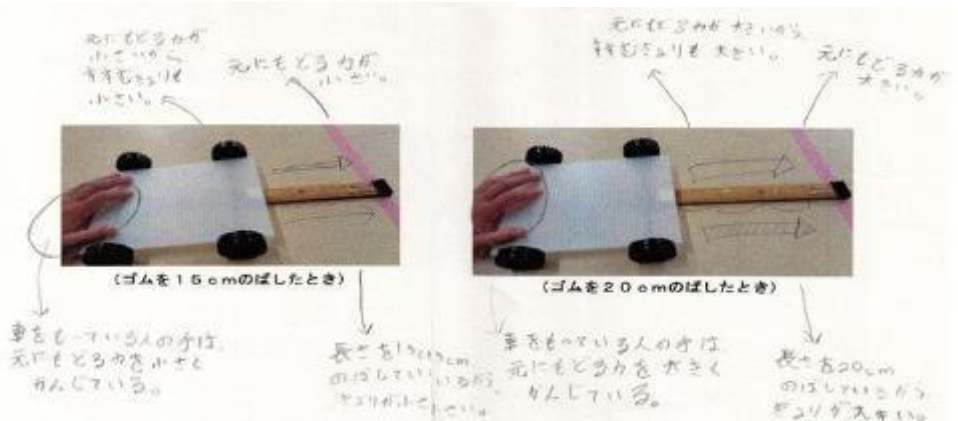 元にもどる力が
小さいから
すすむきょりも
小さい。
元にもどる力が
小さい。
(ゴムを15cmのばしたとき)
車をもっている人の手は
元にもどる力を小さく
かんじている。
長さを15cm
のばしているから
きょりが小さい。
元にもどる力が大きいから
すすむきょりも大きい。
元にもどる力が
大きい。
(ゴムを20cmのばしたとき)
車をもっている人の手は
元にもどる力を大きく
かんじている。
長さを20cm
のばしているから
きょりが大きい。